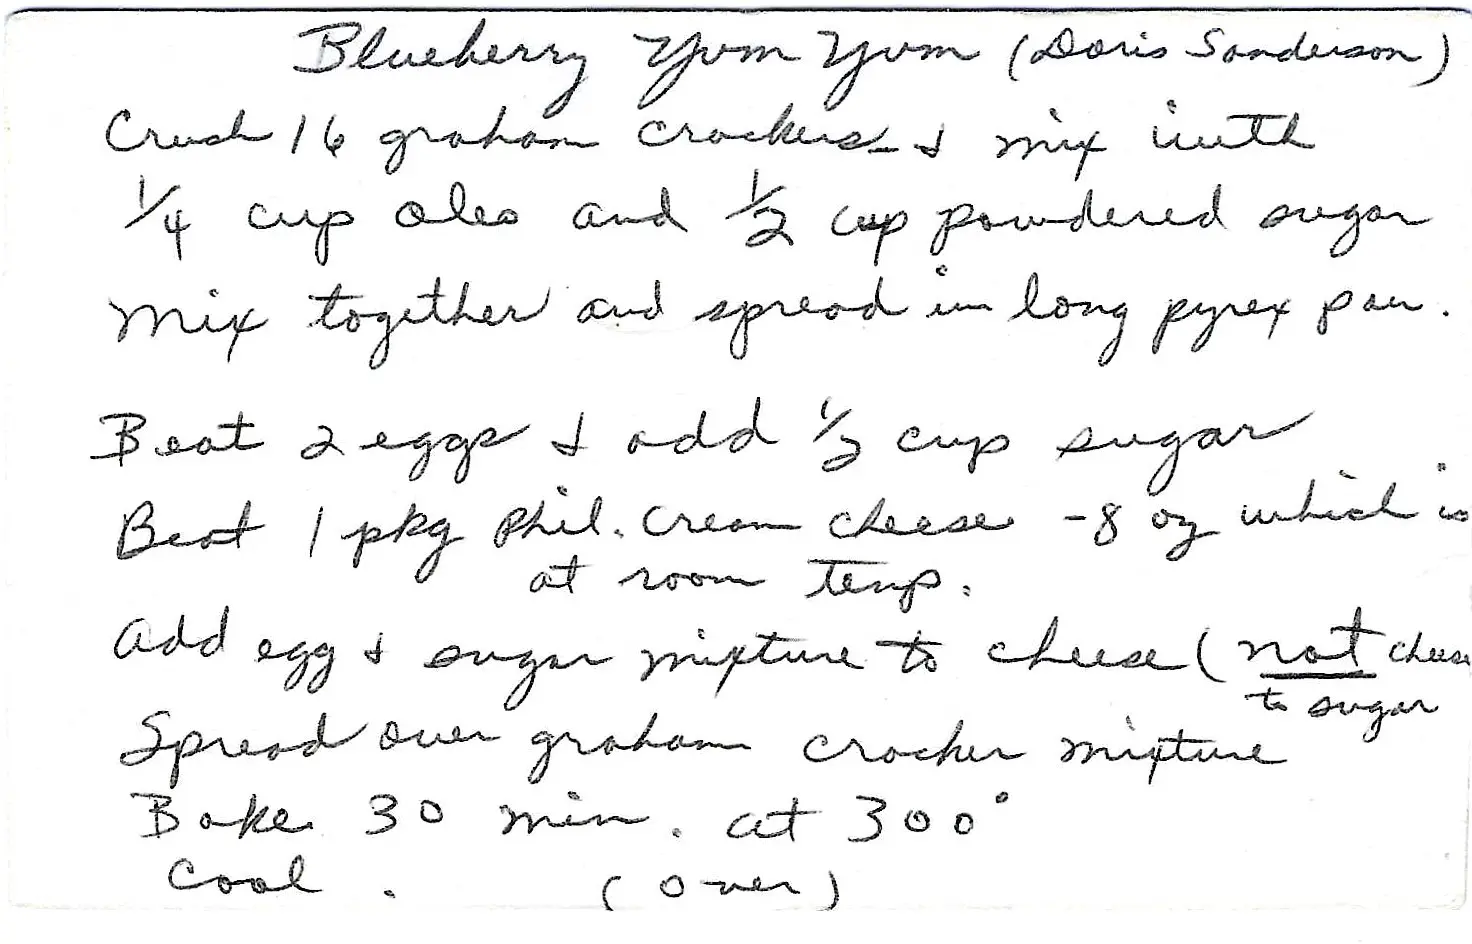 Blueberry Yum Yum (Doris Sanderson)
Crush 16 graham crackers & mix with
1/4 cup oleo and 1/2 cup powdered sugar
Mix together and spread in long pyrex pan.
Beat 2 eggs & add 1/2 cup sugar
Beat 1 pkg Phil. cream cheese - 8 oz which is
at room temp.
Add egg & sugar mixture to cheese (not cheese
to sugar
Spread over graham cracker mixture
Bake 30 min. at 300°
Cool. (over)